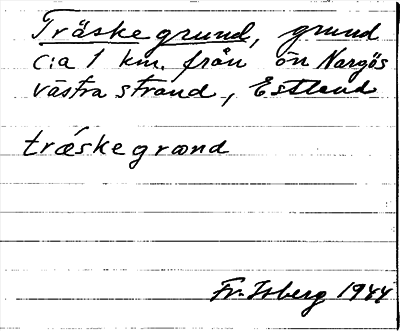 Träskegrund, grund
c:a 1 km. från ön Nargös
västra strand, Estland
træskegrænd
Fr. Isberg 1944